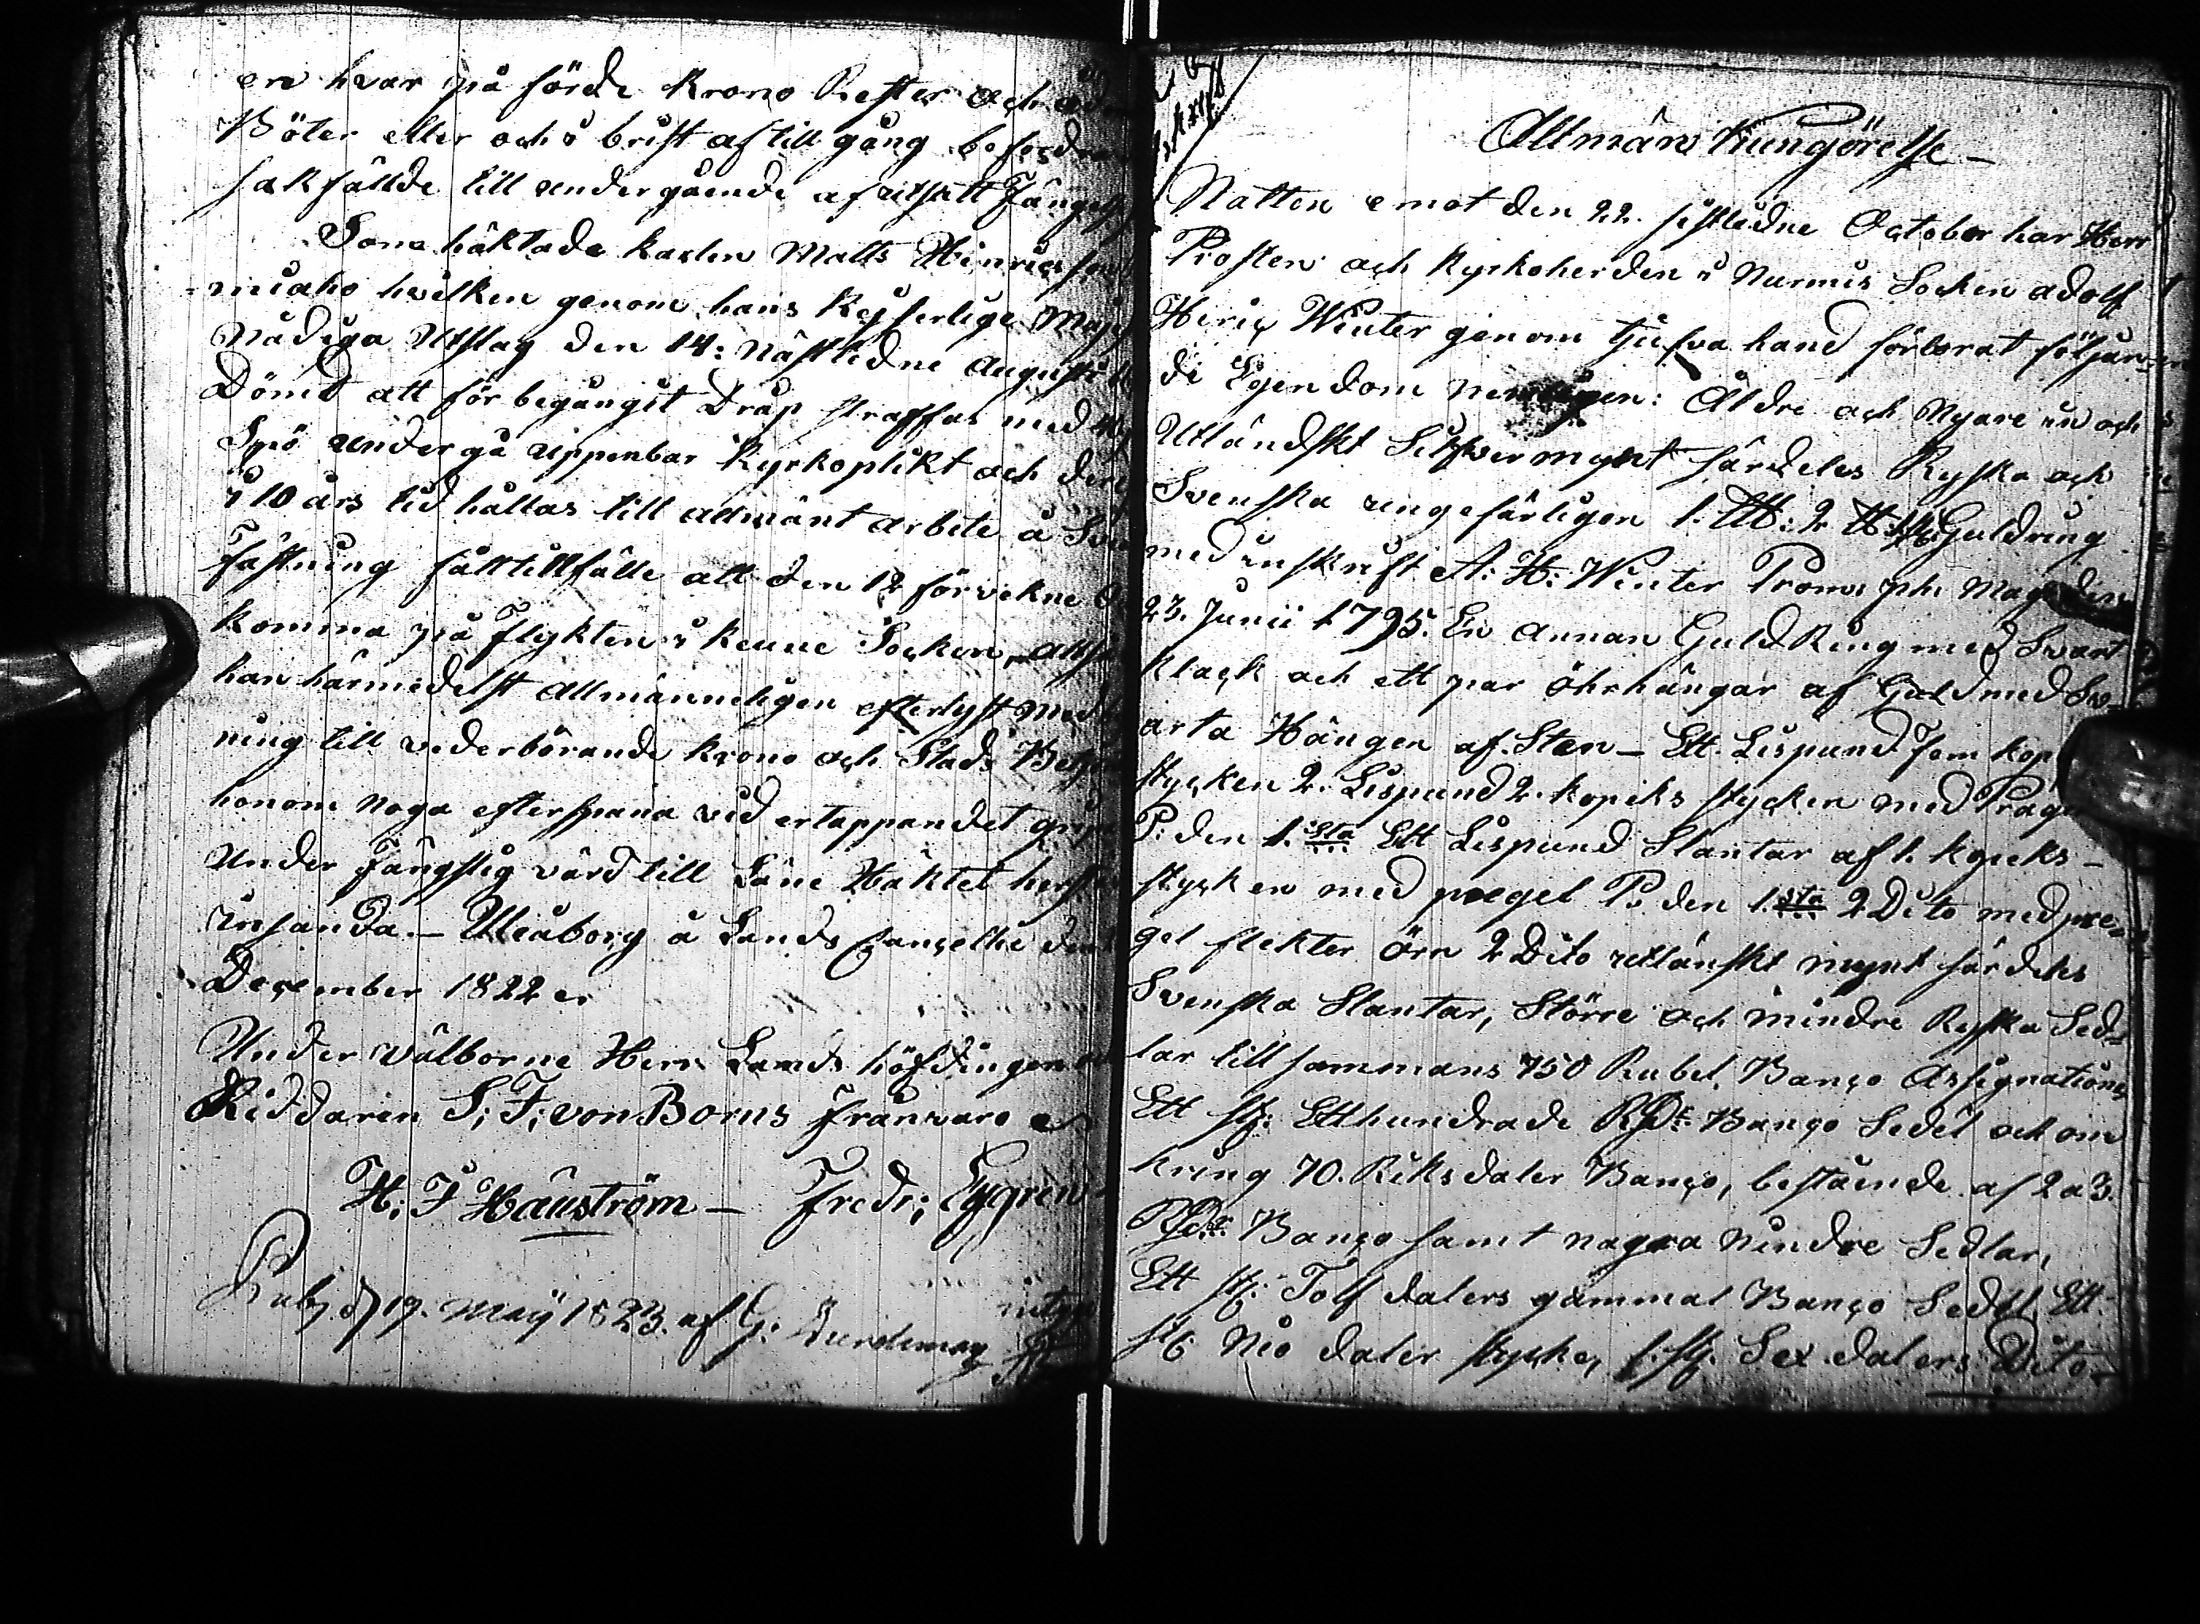 ern hvar på förde Krono Rester och
Böter eller och i brist af till gång befordra
sakfällde till undergående af utsatt Fängels
Som häktade karlen Matts Hinricsson
muaho hvilken genom hans Kejserlige Maj
Nådiga Utslag den 14: Nästledne Augusti
Dömd att för begångit Dråp straffas med
Spö undergå uppenbar Kyrkoplikt och der
i 10 års tid hållas till allmänt arbete å Sve
Fästning fått tillfälle att den 12 förvekne
komma på Flykten i Keuue Socken, altså
han härmedelst allmänneligen efterlyst med
ning till vederbörande Krono och Stads Bef
honom noga efterspana vid ertappandet grip
Under Fängslig vård till Läne Häktet hers
insända. — Uleåborg å Lands Cancellie den
December 1822 er
Under Välborne Herr Lands höfdingen
Riddaren S: F: von Borns Frånvaro
H: F Hauström — Fredr: Eygren
Publ. d 19. Maij 1823. af G:
Allmän Kungörelse —
Natten emot den 22. sistledne October har Herr
Prosten och Kyrkoherden i Nurmis Socken Adolf
Hinric Winter genom tjufva hand förlorat följan-
de Egendom nemligen: Äldre och Nyare in och
Utländskt Silfvermynt särdeles Ryska och
Svenska ungefärligen 1. LB: 2 Guldring
med inskrift A: H: Winter Prom: phi: Mag: den
23. Junii 1795. En annan Guld Ring med Svart
klack och ett par öhrhängar af Guld med Sv-
arta Hängen af Sten — Ett Lispund Fem kop
stycken 2. Lispund 2. kopeks stycken med Prägel
P: den 1.sta Ett Lispund Slantar af 1. kopeks —
stycken med prægel P: den 1.sta 2 Dito med præ-
gel flekter örn 2 Dito utlänskt mynt särdeles
Svenska Slantar, Större och mindre Ryska Sed-
lar tillsammans 750 Rubel, Banco Assignationer
Ett st: Etthundrade RDr Banco Sedel och om
kring 70. Riksdaler Banco, bestående af 2 a 3.
RDr Banco samt nagra mindre Sedlar,
Ett st: Tolf dalers gammal Banco Sedel, Ett
st: Nio daler stycke, 1. st: Sex dalers Dito